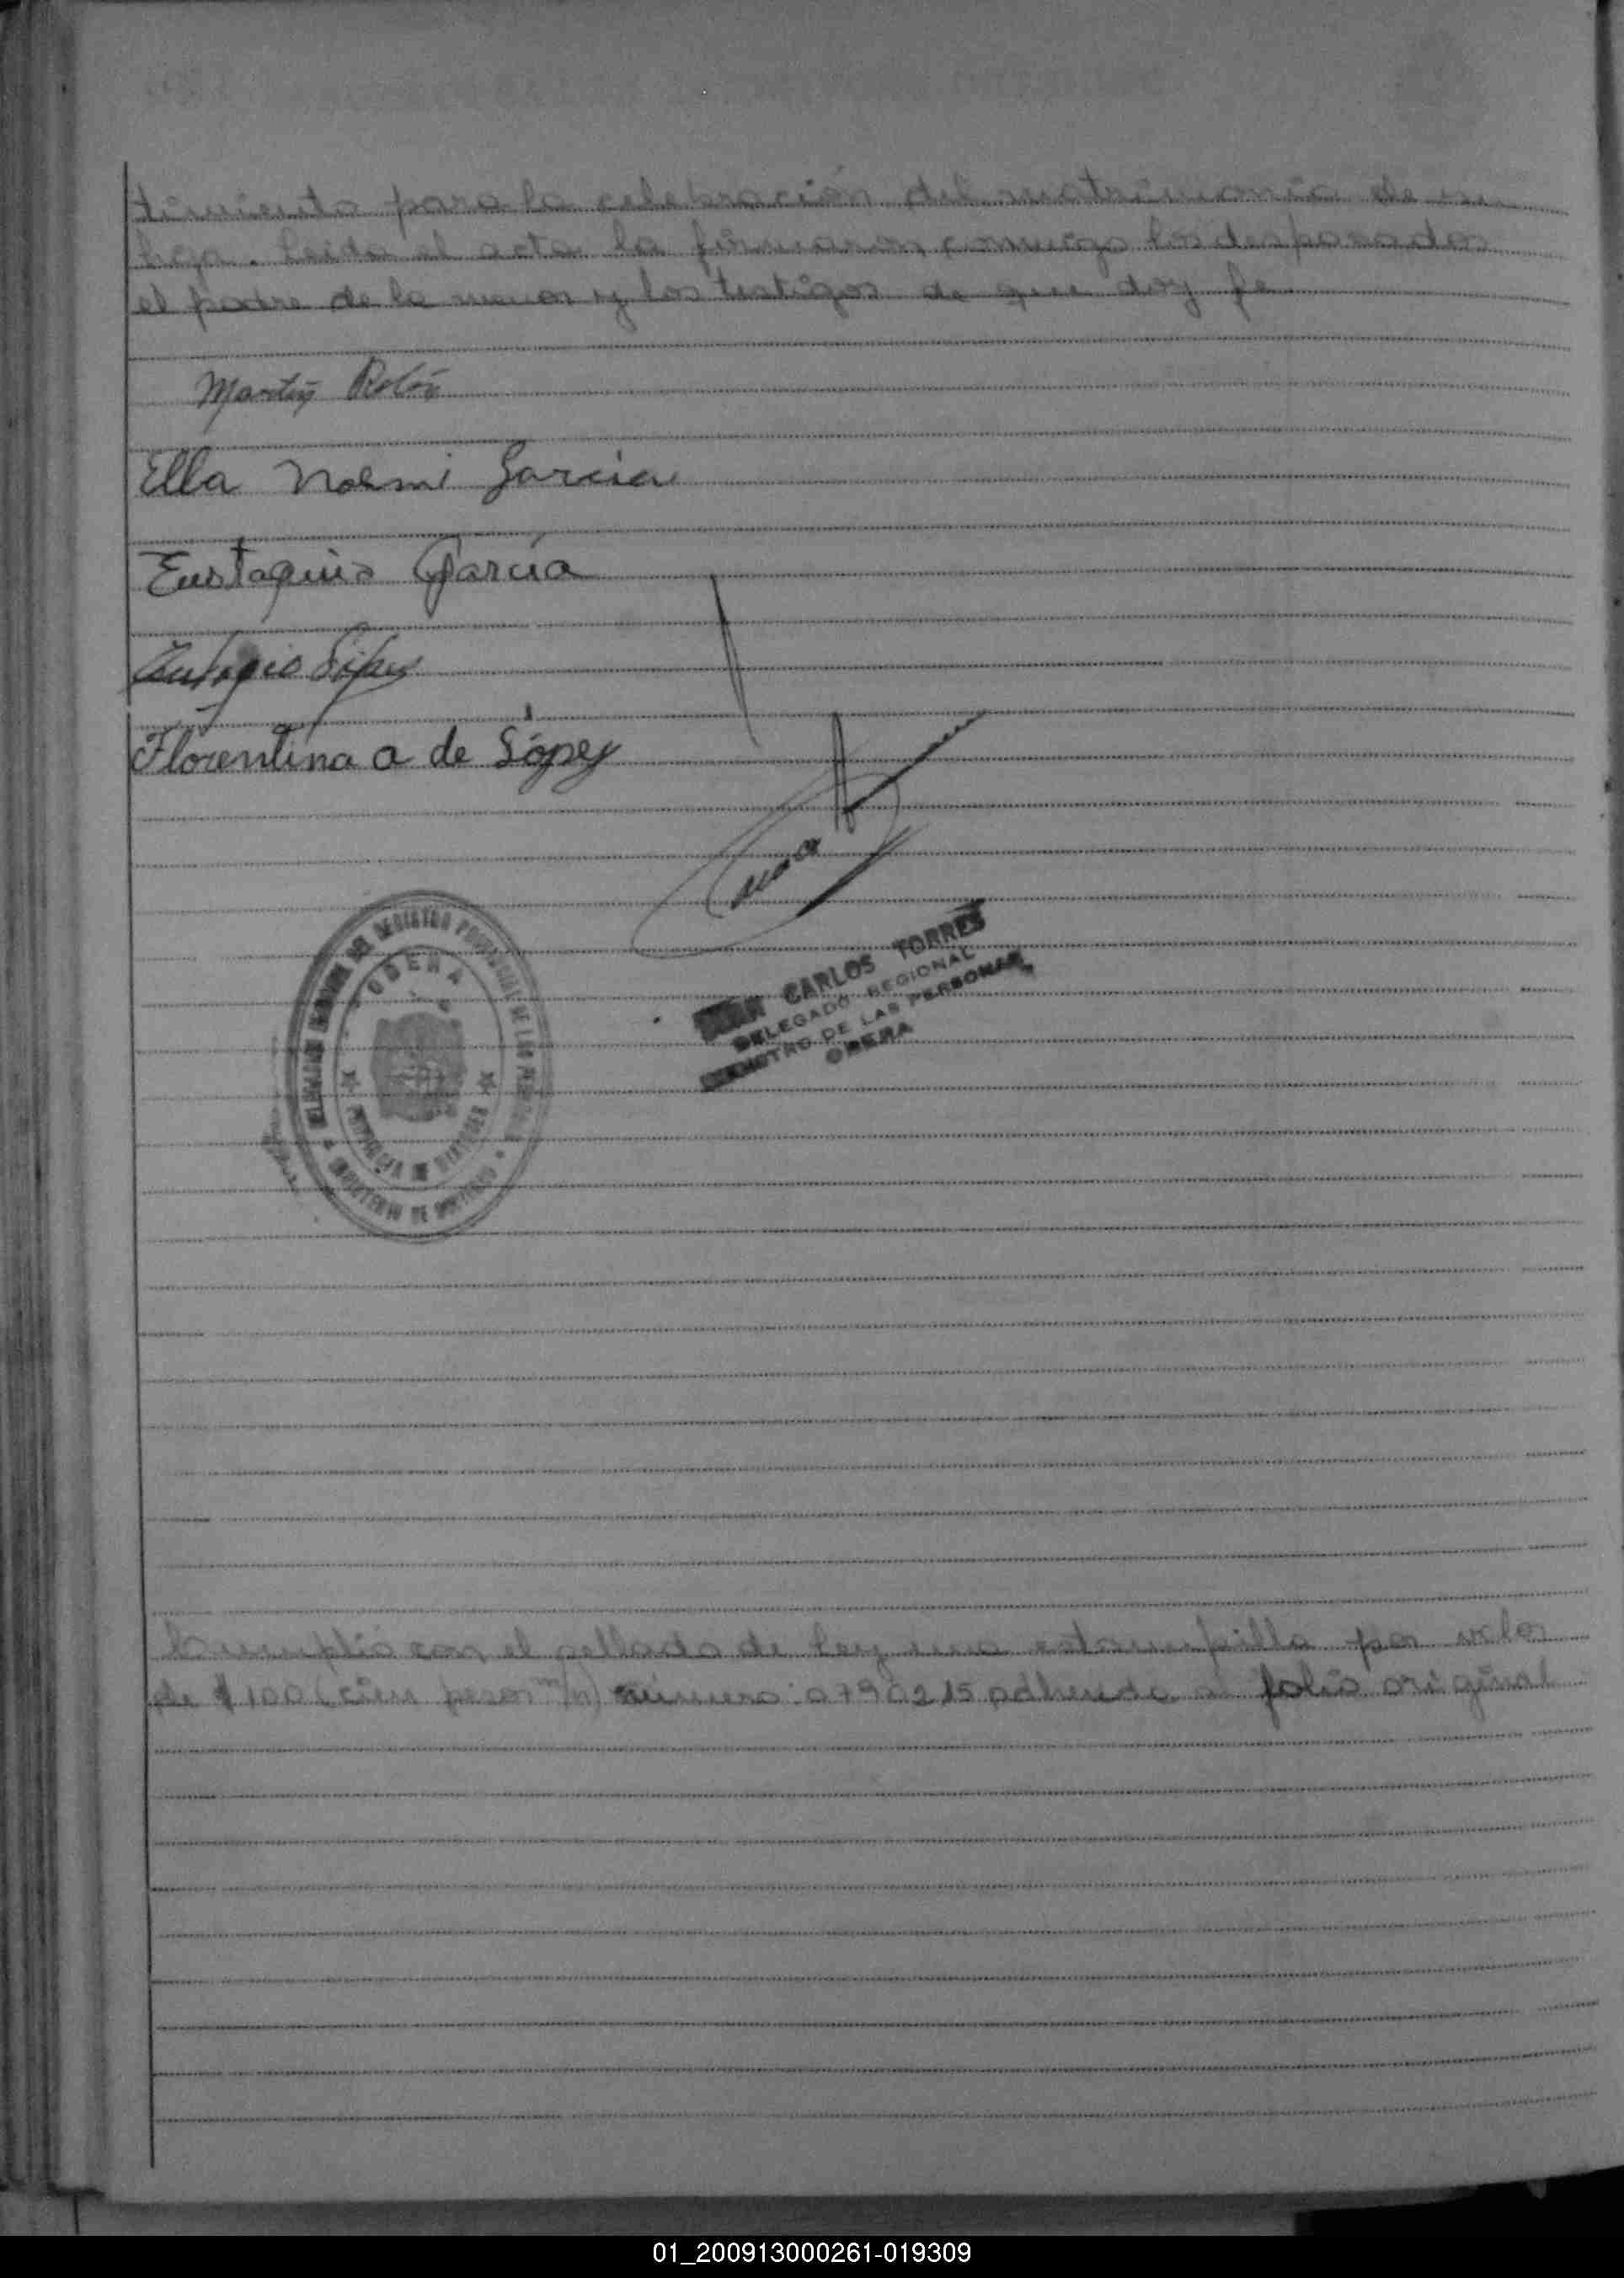 timiento para la celebración del matrimonio de su
hija. Leída el acta la firmaron conmigo los desposados
el padre de la menor y los testigos de que doy fe.
Martín
Ella Noemi García
Eustaquio García
López
Florentina A de López
JUAN CARLOS TORRES
DELEGADO REGIONAL
REGISTRO DE LAS PERSONAS
OBERA
REGISTRO PROVINCIAL DE LAS PERSONAS
OBERA
PROVINCIA DE MISIONES
MINISTERIO DE
cumplió con el sellado de ley una estampilla por valor
de $ 100 (cien pesos m/n) número: 0790215 adherida a folio original
01_200913000261-019309